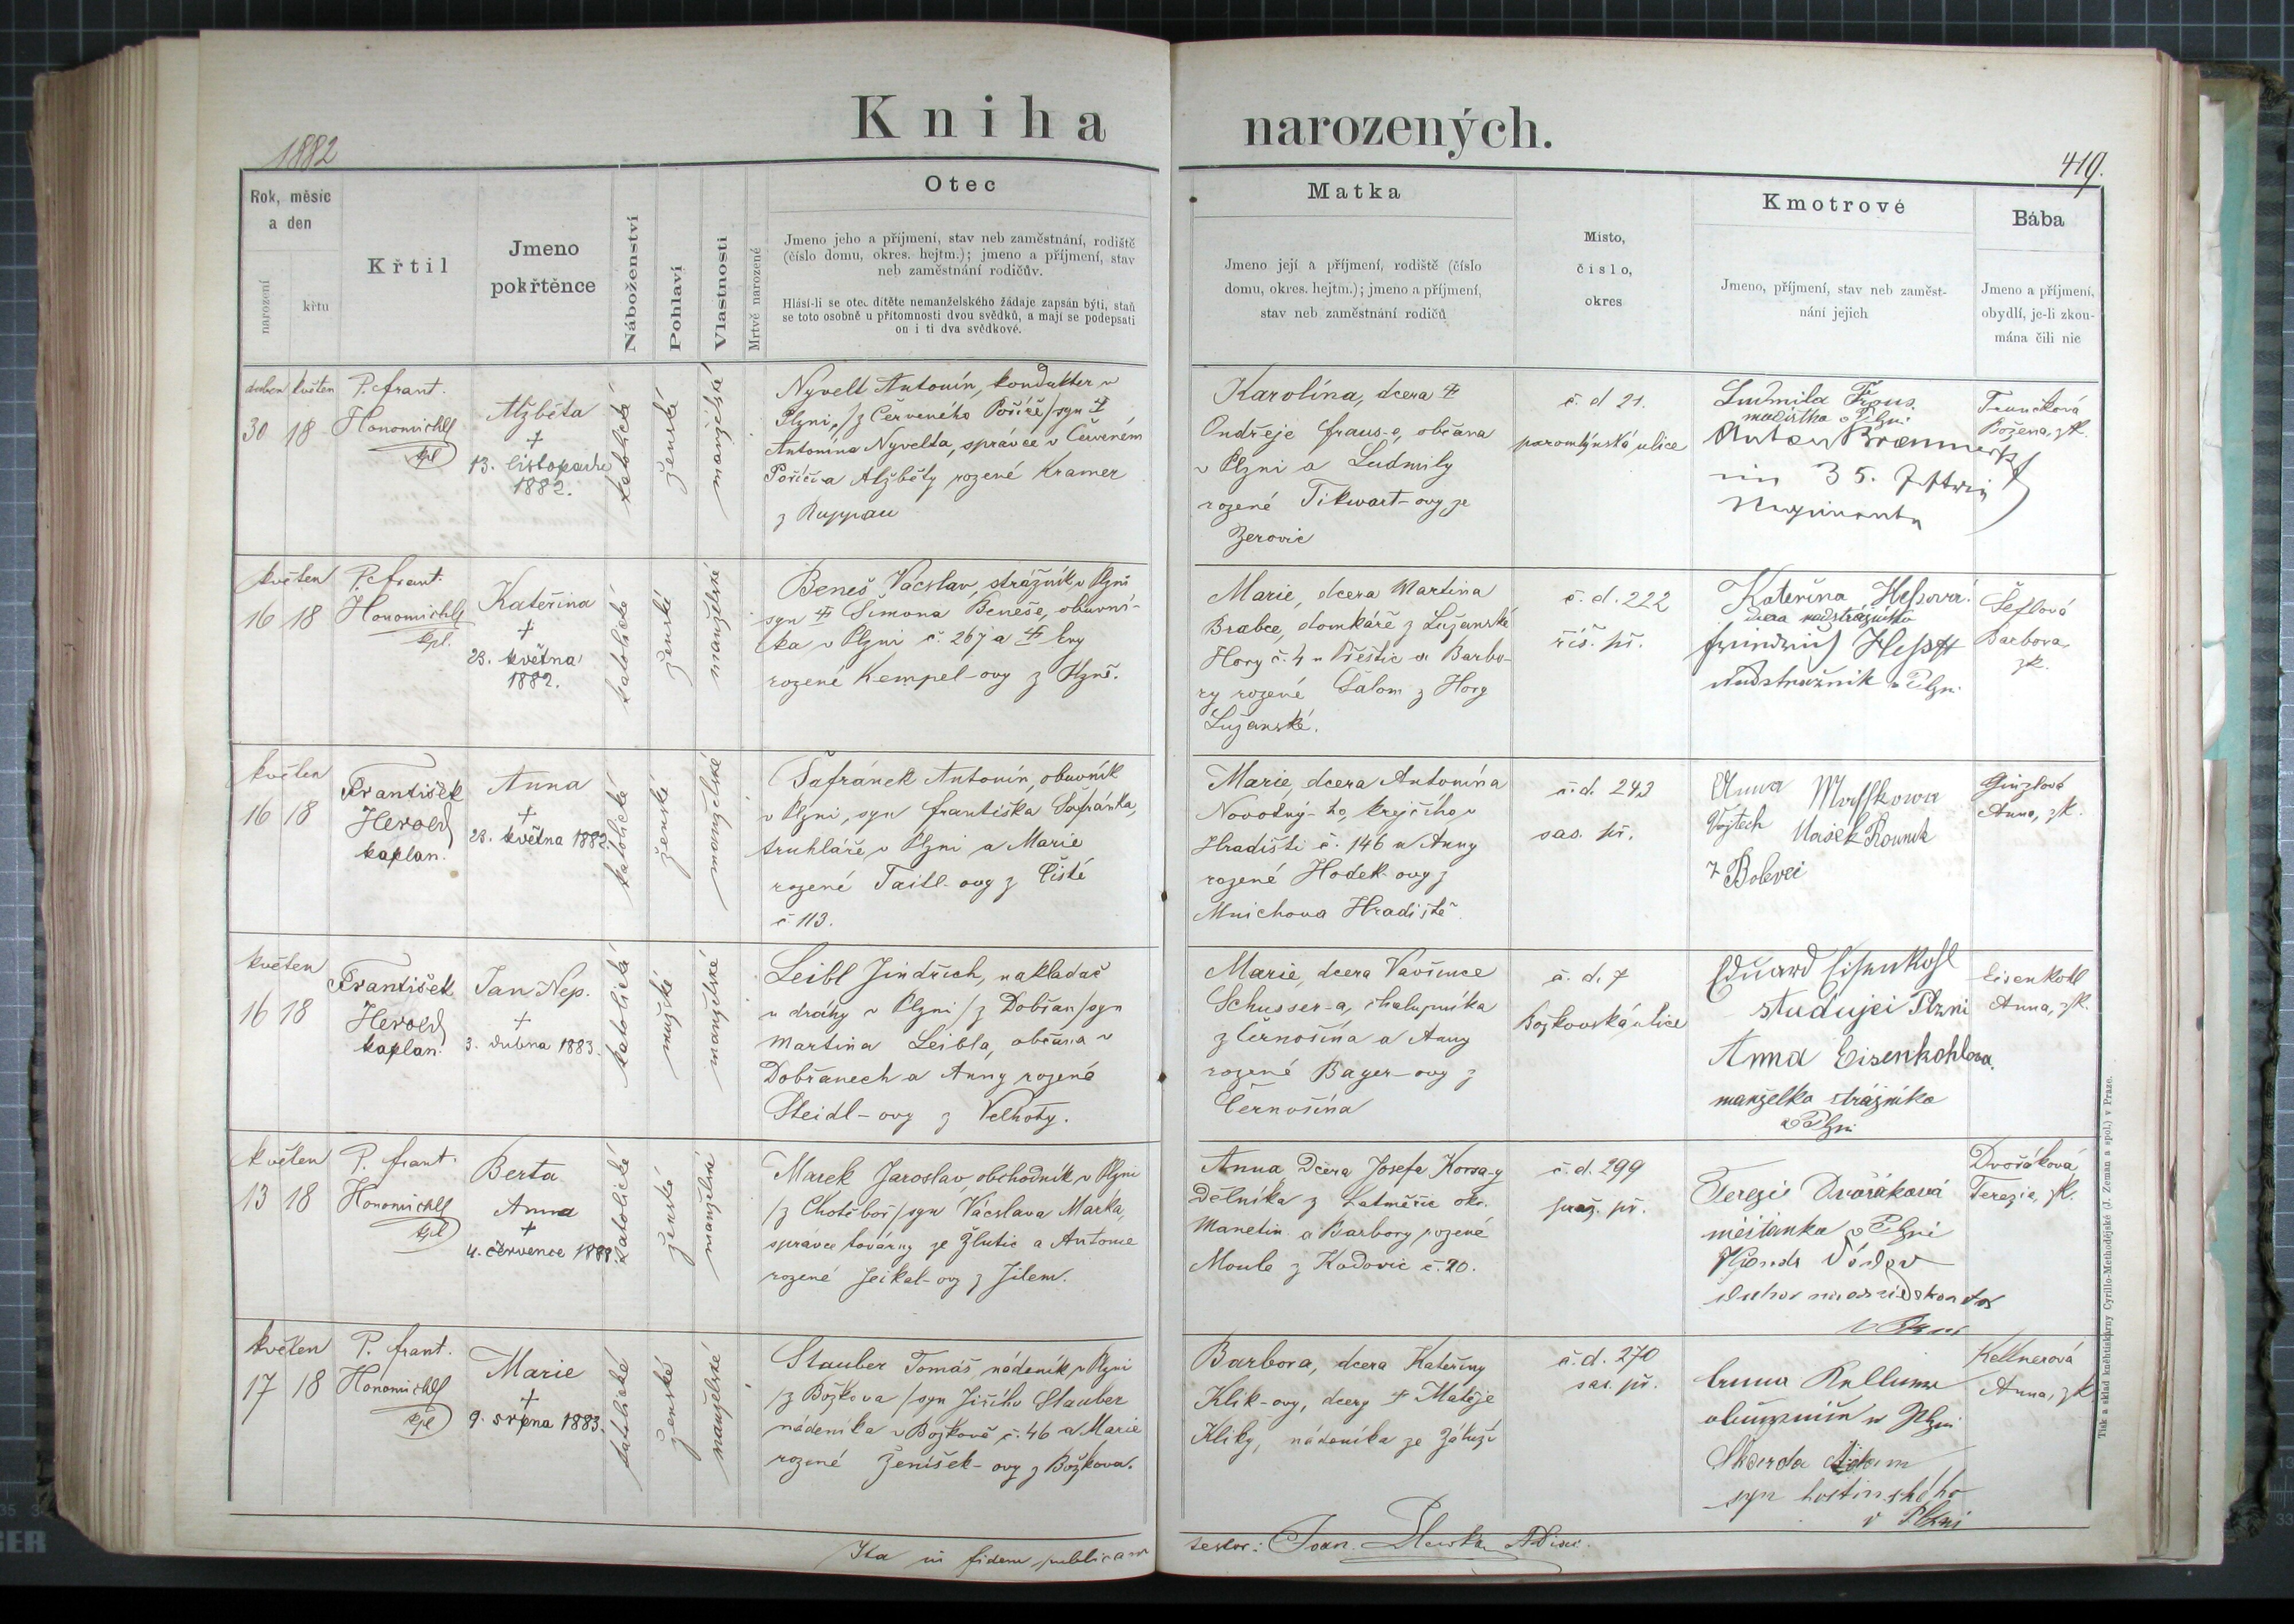 1882
Kniha narozených.
419.
Rok, měsíc
a den
narození
křtu
Křtil
Jmeno
pokřtěnce
Náboženství
Pohlaví
Vlastnosti
Mrtvě narozené
Otec
Jmeno jeho a příjmení, stav neb zaměstnání, rodiště
(číslo domu, okres. hejtm.); jmeno a příjmení, stav
neb zaměstnání rodičův.
Hlásí-li se otec dítěte nemanželského žádaje zapsán býti, staň
se toto osobně u přítomnosti dvou svědků, a mají se podepsati
on i ti dva svědkové.
Matka
Jmeno její a příjmení, rodiště (číslo
domu, okres. hejtm.); jmeno a příjmení,
stav neb zaměstnání rodičů
Místo,
číslo,
okres
Kmotrové
Jmeno, příjmení, stav neb zaměst-
nání jejich
Bába
Jmeno a příjmení,
obydlí, je-li zkou-
mána čili nic
duben květen
30 18
P. Frant.
Honomichl
kpl
Alžběta
+
13. listopadu
1882.
katolické
ženské
manželské
Nývelt Antonín, kondukter v
Plzni, /z Červeného Poříčí/ syn +
Antonína Nyvelta, správce v Červeném
Poříčí a Alžběty rozené Kramer
z Ruppau
Karolína, dcera +
Ondřeje Fraus-a, občana
v Plzni a Ludmily
rozené Tikwart-ovy ze
Žerovic
č. d 21.
paromlýnská ulice
Ludmila Fraus
v Plzni
35.
Trunčková
Božena, zk.
květen
16 18
P. Frant.
Honomichl
kpl.
Kateřina
+
23. května
1882.
katolické
ženské
manželské
Beneš Václav, strážník v Plzni
syn + Šimona Beneše, obuvní-
ka v Plzni č. 267 a + Evy
rozené Kempel-ovy z Plzně.
Marie, dcera Martina
Brabce, domkáře z Lužanské
Hory č. 4 u Přeštic a Barbo-
ry rozené Šalom z Hory
Lužanské.
č. d. 222
říš. př.
Kateřina Hessová
dcera nadstrážníka
Hess
Nadstražnik v Plzni
Šeflová
Barbora,
zk.
květen
16 18
František
Herold
kaplan.
Anna
+
23. května 1882.
katolické
ženské
manželské
Šafránek Antonín, obuvník
v Plzni, syn Františka Šafránka,
truhláře v Plzni a Marie
rozené Taitl-ovy z Čisté
č 113.
Marie, dcera Antonína
Novotný-ho, krejčího v
Hradišti č. 146 a Anny
rozené Hodek-ovy z
Mnichova Hradiště.
č. d. 243
sas. př.
Anna
Vojtech Mašek
z Bolevci
Ginzlová
Anna, zk.
květen
16 18
František
Herold
kaplan.
Jan Nep.
+
3. dubna 1883.
katolické
mužské
manželské
Leibl Jindřich, nakladač
u dráhy v Plzni /z Dobřan/ syn
Martina Leibla, občana v
Dobřanech a Anny rozené
Steidl-ovy z Velhoty.
Marie, dcera Vavřince
Schusser-a, chalupníka
z Černošína a Anny
rozené Bayer-ovy z
Černošína
č. d. 7
Božkovská ulice
Eduard Eisenkohl
studující Plzni
Anna Eisenkohlova.
manželka strážníka
v Plzni
Eisenkohl
Anna, zk.
květen
13 18
P. Frant.
Honomichl
kpl
Berta
Anna
+
4. července 1888.
katolické
ženské
manželské
Marek Jaroslav, obchodník v Plzni
/z Chotěboř/ syn Václava Marka,
správce továrny ze Žlutic a Antonie
rozené Jeikal-ovy z Jilem.
Anna dcera Josefa Korsa-y
dělníka z Latměřic okr.
Manetín a Barbory rozené
Moule z Kadovic č. 20.
č. d. 299
praž. př.
Terezie Dvořáková
měšťanka v Plzni
v Plzni
Dvořáková
Terezie, zk.
květen
17 18
P. Frant.
Honomichl
kpl
Marie
+
9. srpna 1883.
katolické
ženské
manželské
Stauber Tomáš, nádeník v Plzni
/z Božkova/ syn Jiřího Stauber
nádeníka v Božkově č. 46 a Marie
rozené Ženíšek-ovy z Božkova.
Barbora, dcera Kateřiny
Klik-ovy, dcery + Matěje
Kliky, nádeníka ze Záluží
č. d. 270
sas. př.
w Plzni
Skarda Adam
syn hostinského
v Plzni
Kellnerová
Anna, zk.
Ita in fidem publicam
testor: Joan.
Tisk a sklad kněhtiskárny Cyrillo-Methodějské (J. Zeman a spol.) v Praze.